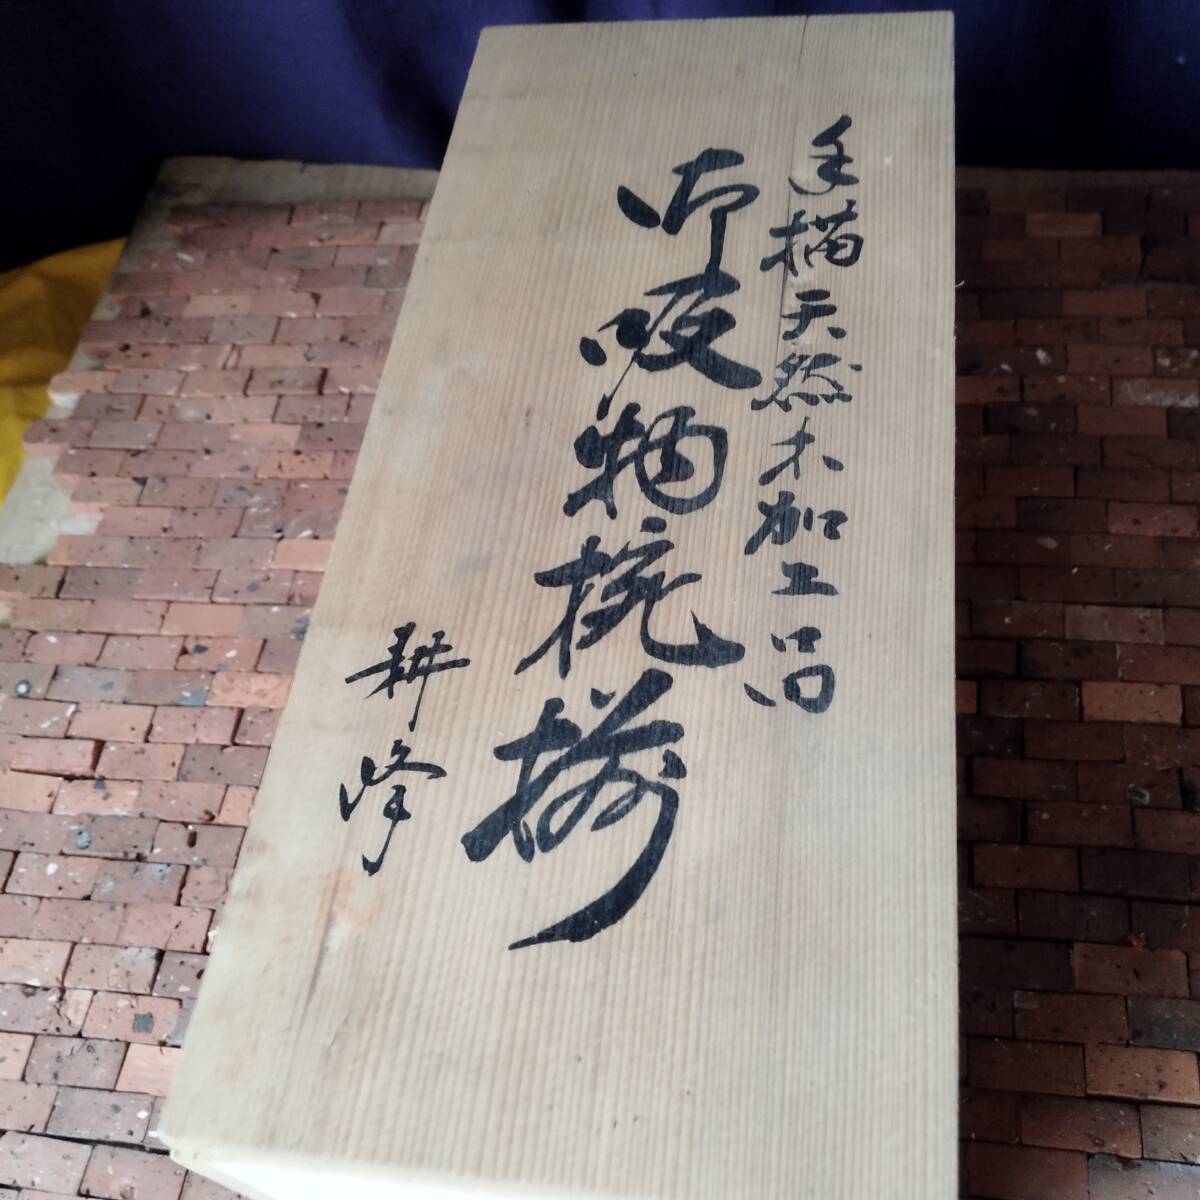 手描天然木加工品
御吸物椀揃
耕峰